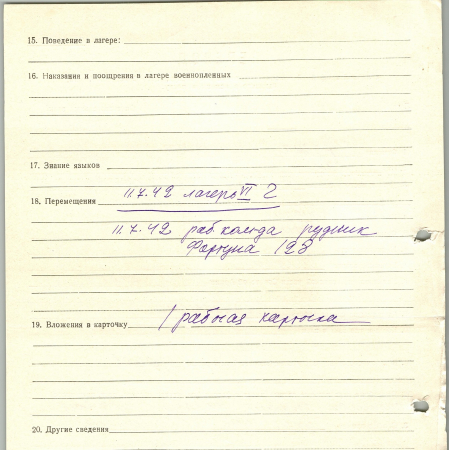 15. Поведение в лагере:
16. Наказания и поощрения в лагере военнопленных
17. Знание языков
18. Перемещения 11.7.42 лагерь VI G
11.7.42 раб команда рудник
Фортуна 123
19. Вложения в карточку 1 рабочая карточка
20. Другие сведения